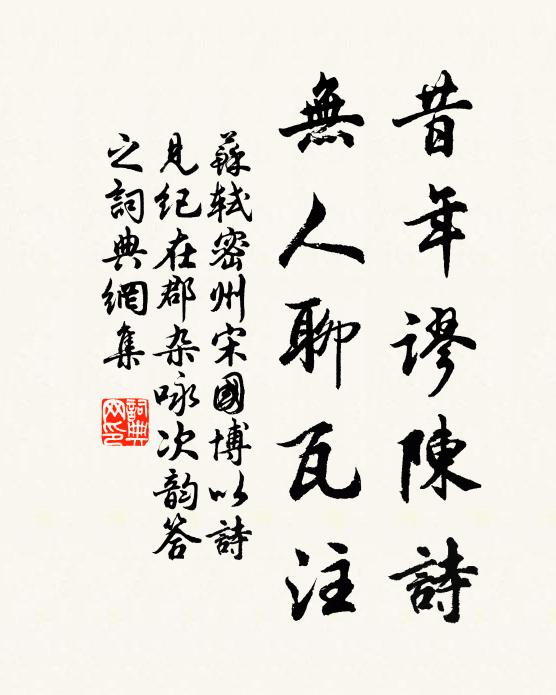 昔年謬陳詩
無人聊瓦注
蘇軾密州宋國博以詩
見紀在郡杂咏次韵答
之詞典網集
詞典
网印